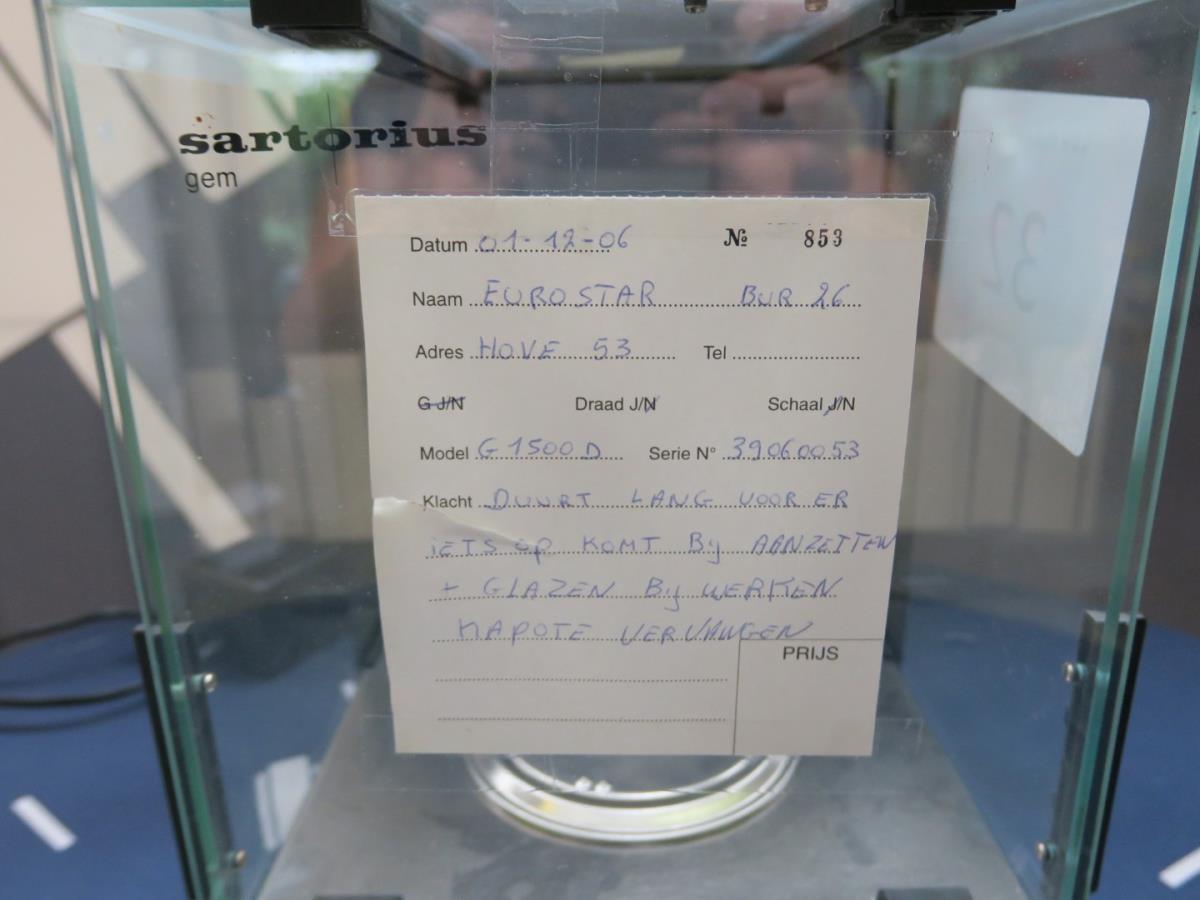 sartorius
gem
Datum 01-12-06 № 853
Naam EUROSTAR BUR 26
Adres HOVE 53 Tel
G J/N Draad J/N Schaal J/N
Model G 1500 D Serie N° 39060053
Klacht DUURT LANG VOOR ER
IETS OP KOMT BIJ AANZETTEN
+ GLAZEN BIJ WERKEN
KAPOTE VERVANGEN
PRIJS
32